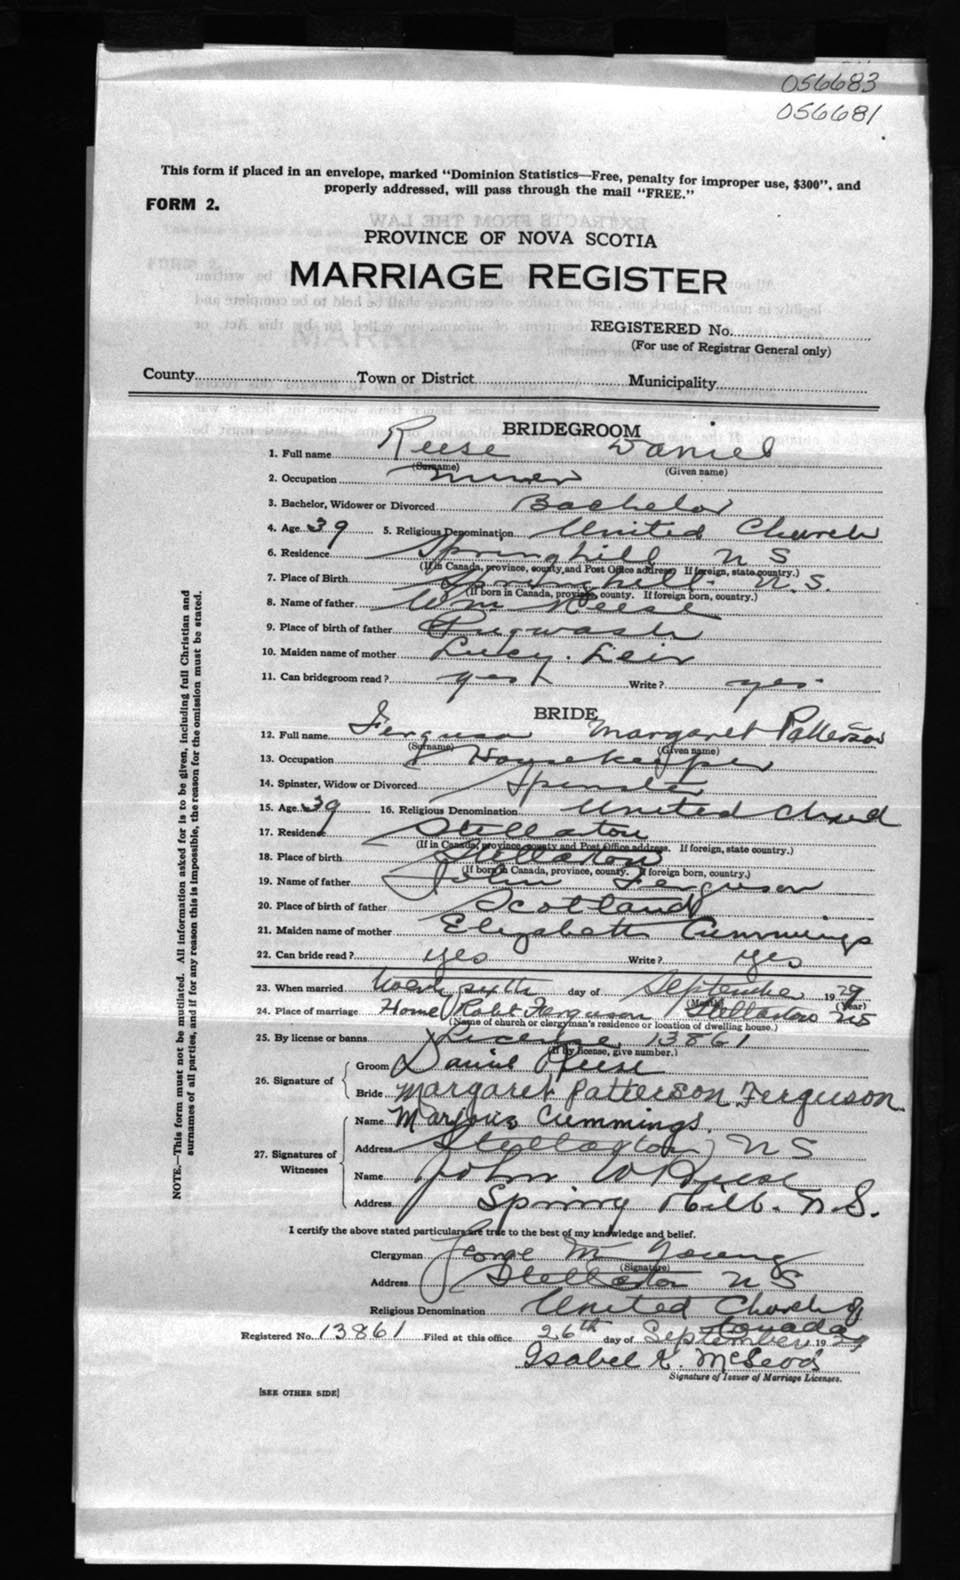 056683
056681
This form if placed in an envelope, marked "Dominion Statistics—Free, penalty for improper use, $300", and
properly addressed, will pass through the mail "FREE."
FORM 2.
PROVINCE OF NOVA SCOTIA
MARRIAGE REGISTER
REGISTERED No.
(For use of Registrar General only)
County Town or District Municipality
BRIDEGROOM
1. Full name Reese Daniel
(Surname) (Given name)
2. Occupation Miner
3. Bachelor, Widower or Divorced Bachelor
4. Age 39 5. Religious Denomination United Church
6. Residence Springhill N S
(If in Canada, province, county and Post Office address. If foreign, state country.)
7. Place of Birth Springhill N.S.
(If born in Canada, province, county. If foreign born, country.)
8. Name of father Wm Reese
9. Place of birth of father Pugwash
10. Maiden name of mother Lucy
11. Can bridegroom read? yes Write? yes
BRIDE
12. Full name Ferguson Margaret Patterson
(Surname) (Given name)
13. Occupation Housekeeper
14. Spinster, Widow or Divorced Spinster
15. Age 39 16. Religious Denomination United Church
17. Residence Stellarton
(If in Canada, province, county and Post Office address. If foreign, state country.)
18. Place of birth Stellarton
(If born in Canada, province, county. If foreign born, country.)
19. Name of father John Ferguson
20. Place of birth of father Scotland
21. Maiden name of mother Elizabeth Cummings
22. Can bride read? yes Write? yes
23. When married day of September 1929
(Month) (Year)
24. Place of marriage Home Robt Ferguson Stellarton NS
(Name of church or clergyman's residence or location of dwelling house.)
25. By license or banns License 13861
(If by license, give number.)
26. Signature of
Groom Daniel Reese
Bride Margaret Patterson Ferguson
27. Signatures of Witnesses
Name Cummings.
Address Stellarton NS
Name John W Reese
Address Spring Hill. N.S.
I certify the above stated particulars are true to the best of my knowledge and belief.
Clergyman George M Young
(Signature)
Address Stellarton N S
Religious Denomination United Church of
Canada
Registered No. 13861 Filed at this office 26th day of September 1929
Isabel K. McLeod
Signature of Issuer of Marriage Licenses.
[SEE OTHER SIDE]
NOTE.—This form must not be mutilated. All information asked for is to be given, including full Christian and
surnames of all parties, and if for any reason this is impossible, the reason for the omission must be stated.